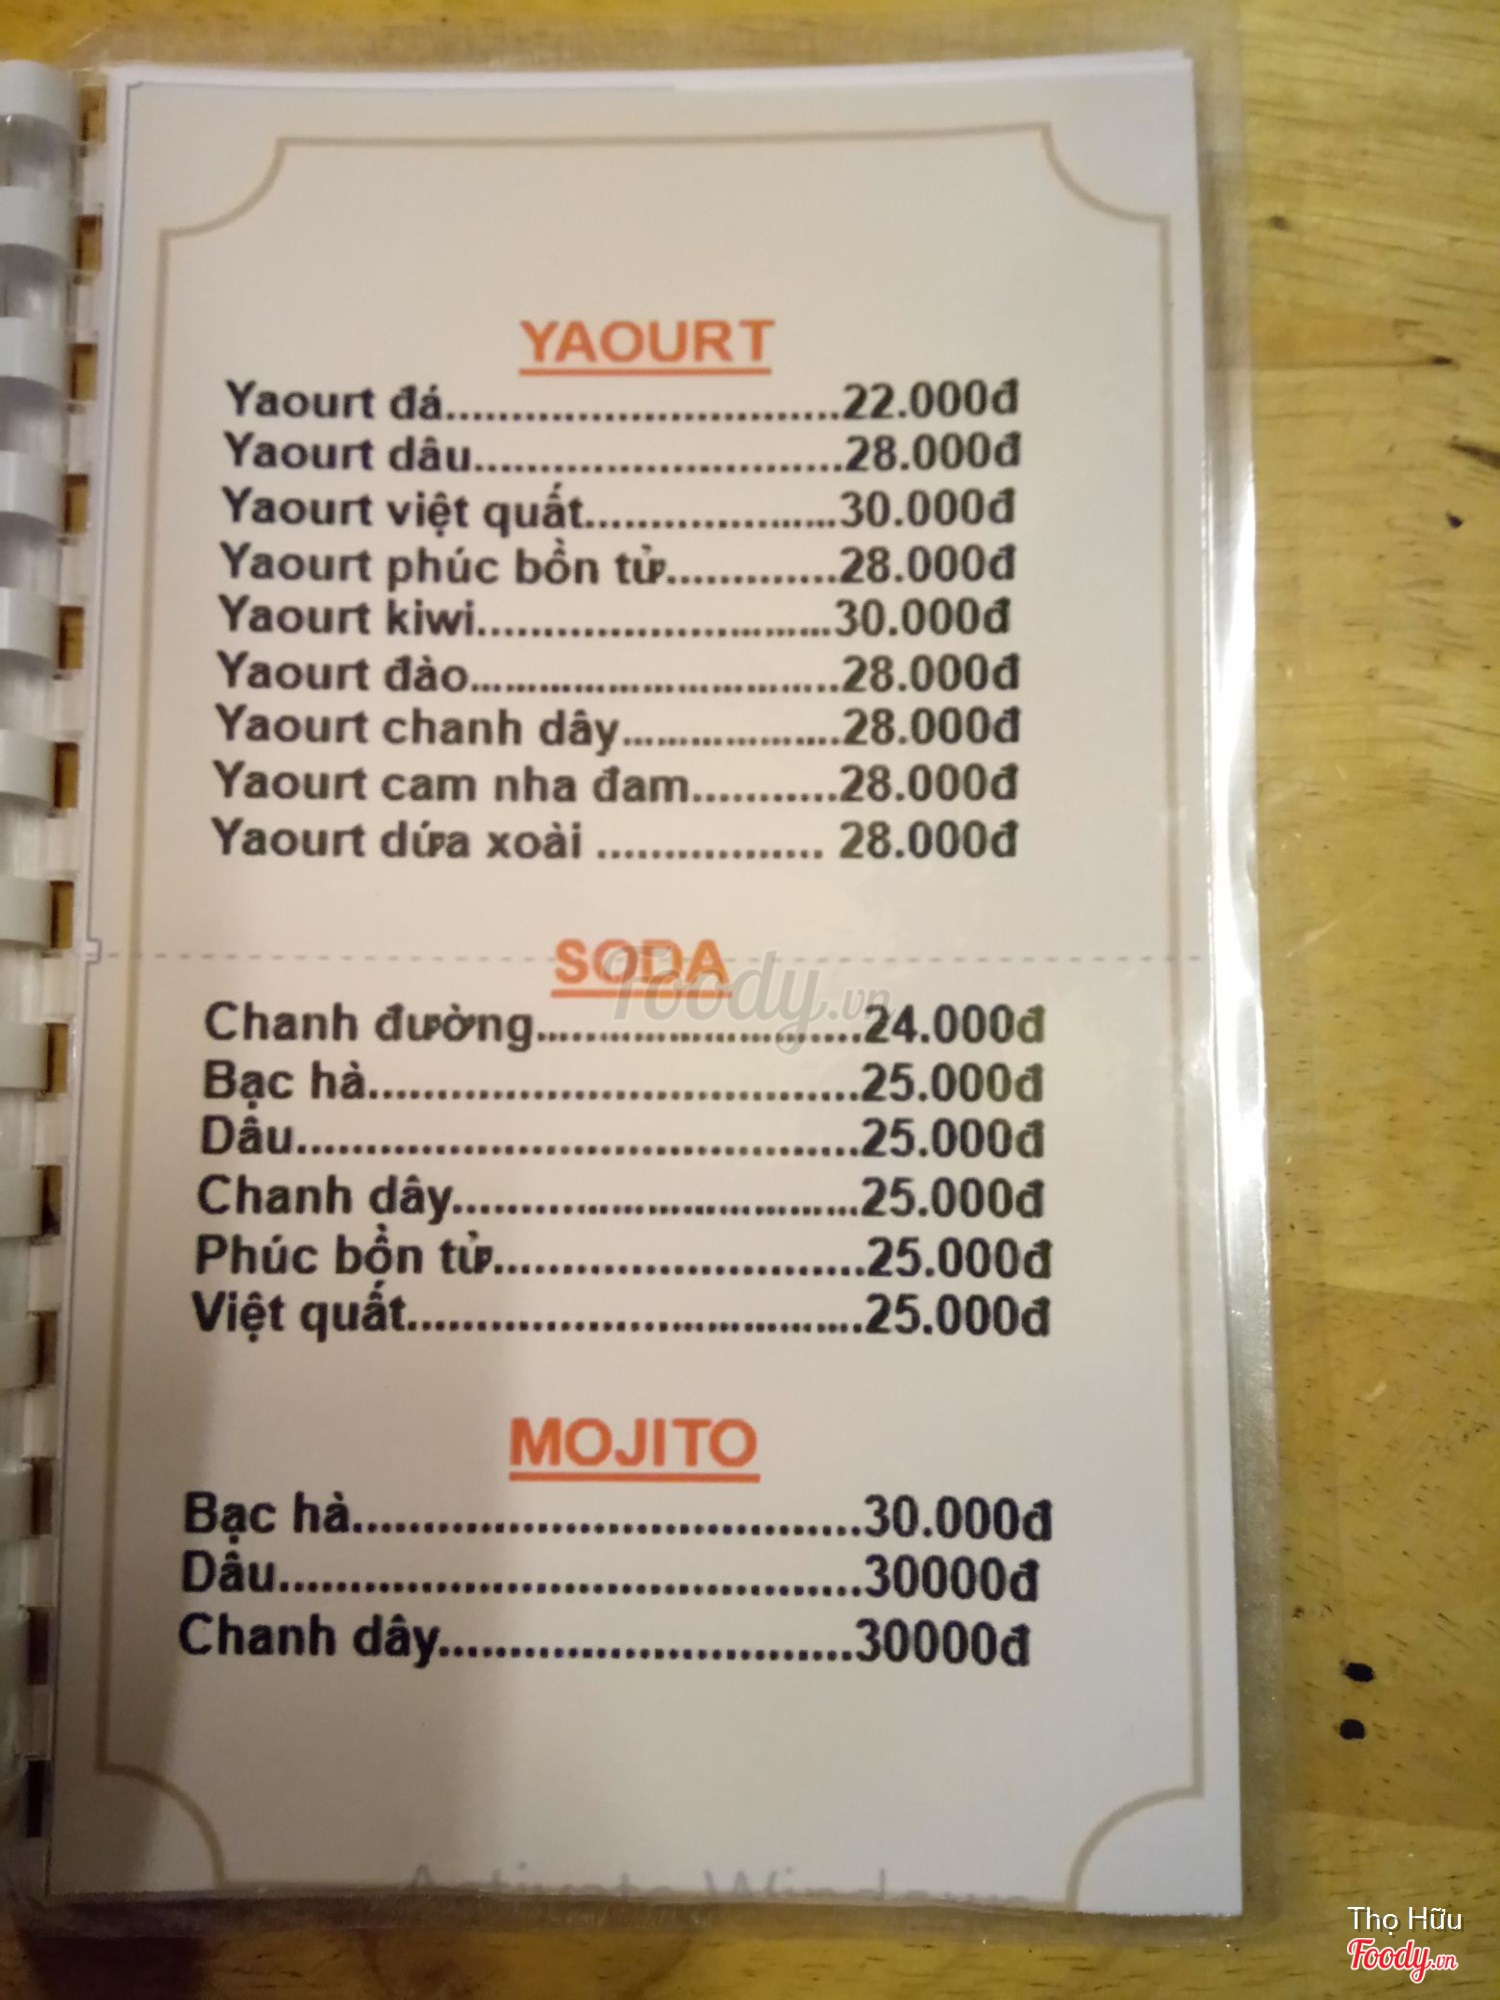 YAOURT
Yaourt đá..............................22.000đ
Yaourt dâu............................28.000đ
Yaourt việt quất...................30.000đ
Yaourt phúc bồn tử.............28.000đ
Yaourt kiwi...........................30.000đ
Yaourt đào............................28.000đ
Yaourt chanh dây.................28.000đ
Yaourt cam nha đam...........28.000đ
Yaourt dứa xoài ................. 28.000đ
SODA
Foody.vn
Chanh đường.........................24.000đ
Bạc hà.....................................25.000đ
Dâu..........................................25.000đ
Chanh dây...............................25.000đ
Phúc bồn tử............................25.000đ
Việt quất..................................25.000đ
MOJITO
Bạc hà.....................................30.000đ
Dâu..........................................30000đ
Chanh dây..............................30000đ
Activate Windows
Thọ Hữu
Foody.vn